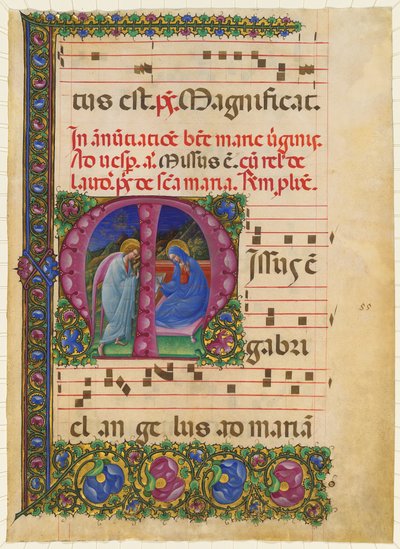 tus est. ps. Magnificat.
In ānūtiatiōe bt̄e marie v̄ginis.
Ad vesp̄. a. Missus ē. cū de
de scā maria.
Missus ē
gabri
55
el an ge lus ad mariā